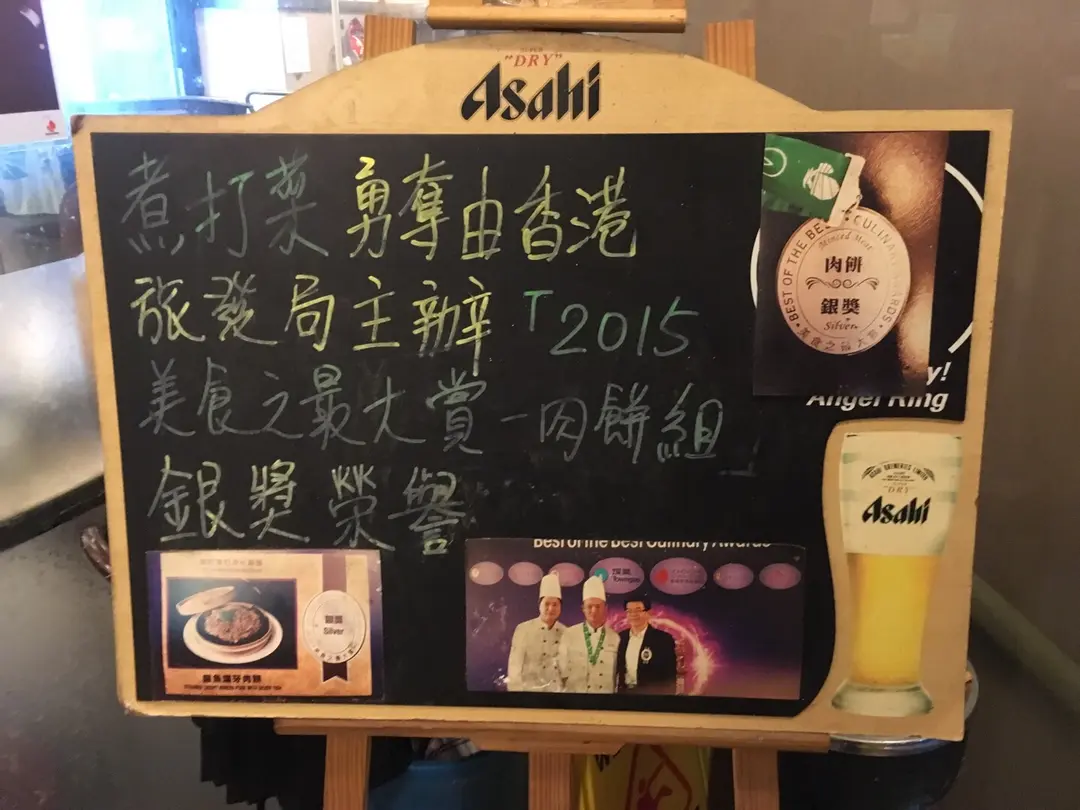 SUPER
"DRY"
Asahi
煮打菜 勇奪由香港
旅發局主辦「2015
美食之最大賞－肉餅組」
銀獎榮譽
BEST OF THE BEST CULINARY AWARDS
Minced Meat
肉餅
銀獎
Silver
美食之最大賞
y!
Angel Ring
ASAHI BREWERIES LIMITED
"DRY"
Asahi
銀獎
Silver
Best of the Best Culinary Awards
Towngas